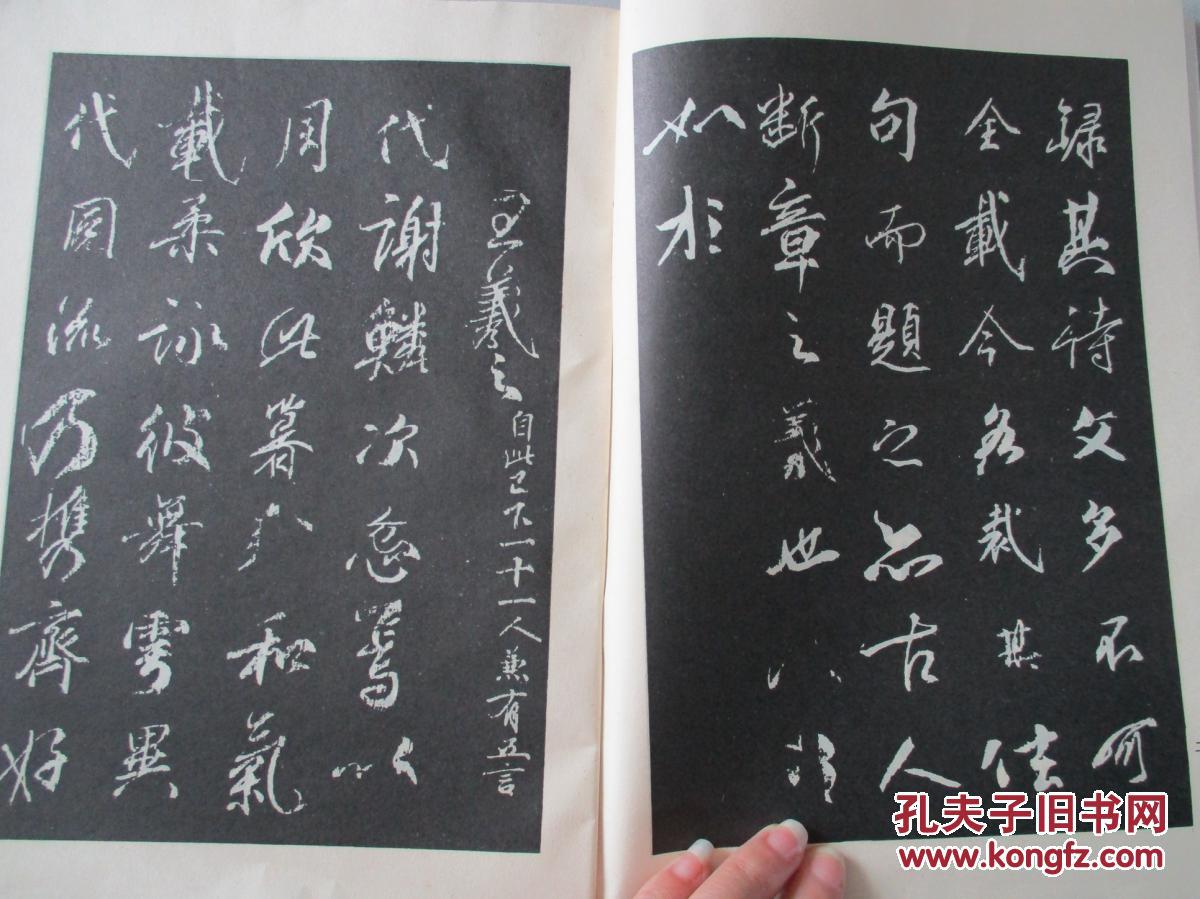 錄其詩文多不可
全載今各裁其佳
句而題之亦古人
斷章之義也
如於
王羲之 自此已下一十一人兼有五言
代謝鱗次忽焉以
周欣此暮春和氣
載柔詠彼舞雩異
代同流乃攜齊好
孔夫子旧书网
www.kongfz.com